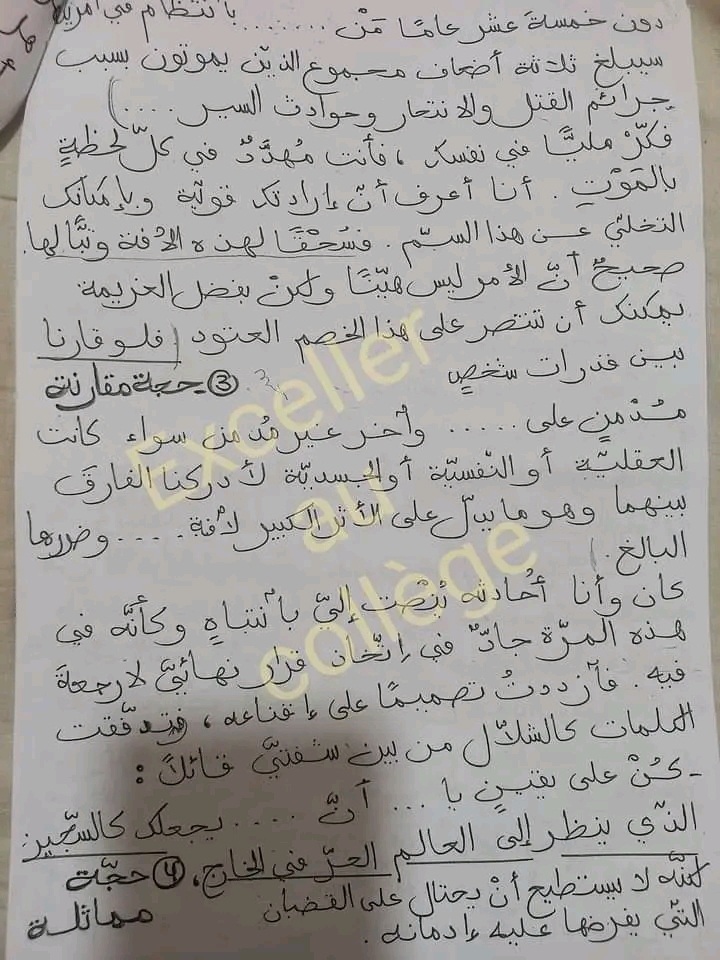 دون خمسة عشر عامًا مَنْ ........ بانتظام في أمريكا
سيبلغ ثلاثة أضعاف مجموع الذين يموتون بسبب
جرائم القتل والانتحار وحوادث السير ....)
فكّرْ مليًّا في نفسك ، فأنت مُهدَّدٌ في كلّ لحظةٍ
بالمَوْتِ . أنا أعرف أنّ إرادتك قويّة وبإمكانك
التخلّي عن هذا السمّ . فسُحْقًا لهذه الآفة وتبًّا لها.
صحيحٌ أنّ الأمر ليس هيّنًا ولكنْ بفضل العزيمة
يمكنك أن تنتصر على هذا الخصم العنود (فلو قارنا
بين قدرات شخصٍ
③ـ حجة مقارنة
مُدمنٍ على ..... وآخر غير مُدمن سواء كانت
العقليّة أو النّفسيّة أو الجسديّة لأدركنا الفارقَ
بينهما وهو ما يدلّ على الأثر الكبير لآفة .... وضررها
البالغ .)
كان وأنا أُحادثه يُنْصت إليّ بانتباهٍ وكأنّه في
هذه المرّة جادٌّ في اتّخاذ قرار نهائيّ لا رجعةَ
فيه . فازددتُ تصميمًا على إقناعه ، فتدفّقت
الكلمات كالشلاّل من بين شفتيّ قائلاً :
ـ كُنْ على يقينٍ يا ... أنّ .... يجعلك كالسّجين
الذّي ينظر إلى العالم الحرّ في الخارج ،
④ حجّة مماثلة
لكنّه لا يستطيع أنْ يحتال على القضبان
التّي يفرضها عليه إدمانه .
Exceller
au
collège